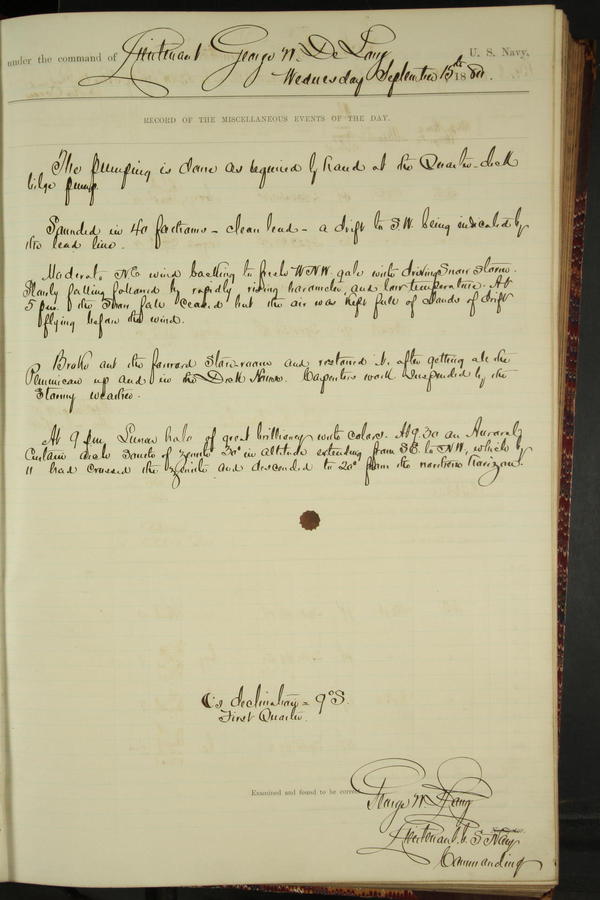 under the command of Lieutenant George W. De Long U. S. Navy,
Wednesday September 15th 1880.
RECORD OF THE MISCELLANEOUS EVENTS OF THE DAY.
The pumping is done as required by hand at the Quarter-deck
bilge pump.
Sounded in 40 fathoms - clean lead - a drift to S.W. being indicated by
the lead line.
Moderate N.E. wind backing to fresh W.N.W. gale with driving Snow Storm.
Slowly falling followed by rapidly rising barometer, and low temperature. At
5 p.m. the Snow fall ceased but the air was kept full of clouds of drift
flying before the wind.
Broke out the forward Store-room and restowed it after getting all the
Pemmican up and in the Deck House. Carpenters work suspended by the
Stormy weather.
At 9 p.m. Lunar halo of great brilliancy with colors. At 9.30 an Auroral
Curtain arch South of zenith 30° in altitude extending from S.E. to N.W., which by
11 had crossed the zenith and descended to 20° from the northern horizon.
☾'s declination = 9° S.
First Quarter.
Examined and found to be correct.
George W. De Long
Lieutenant U.S. Navy
Commanding